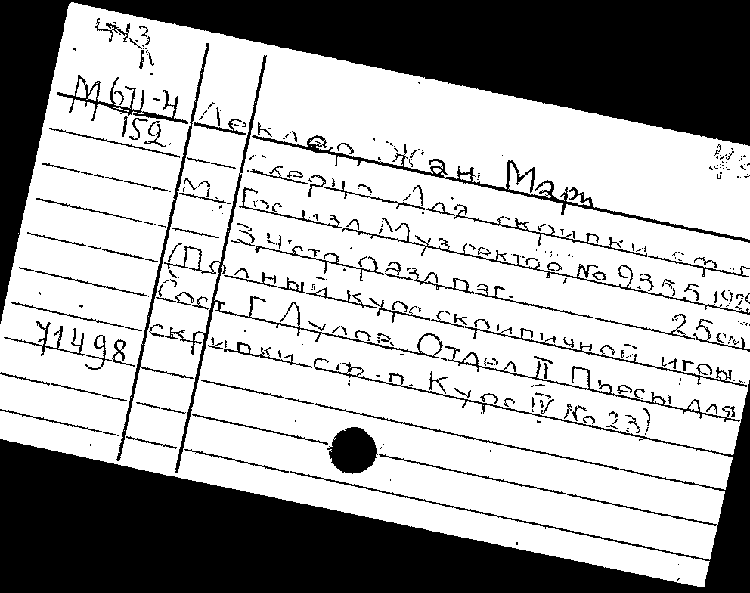 М 671-4
152
Леклер, Жан Мари
Скерцо Для скрипки с ф.
М. Гос. изд. Муз сектор, No 9355, 192
3,4 стр. разд паг. 25 см.
(Полный курс скрипичной игры.
Сост. Г Дулов. Отдел II Пьесы для
71498 скрипки с ф.-п. Курс IV No 23)